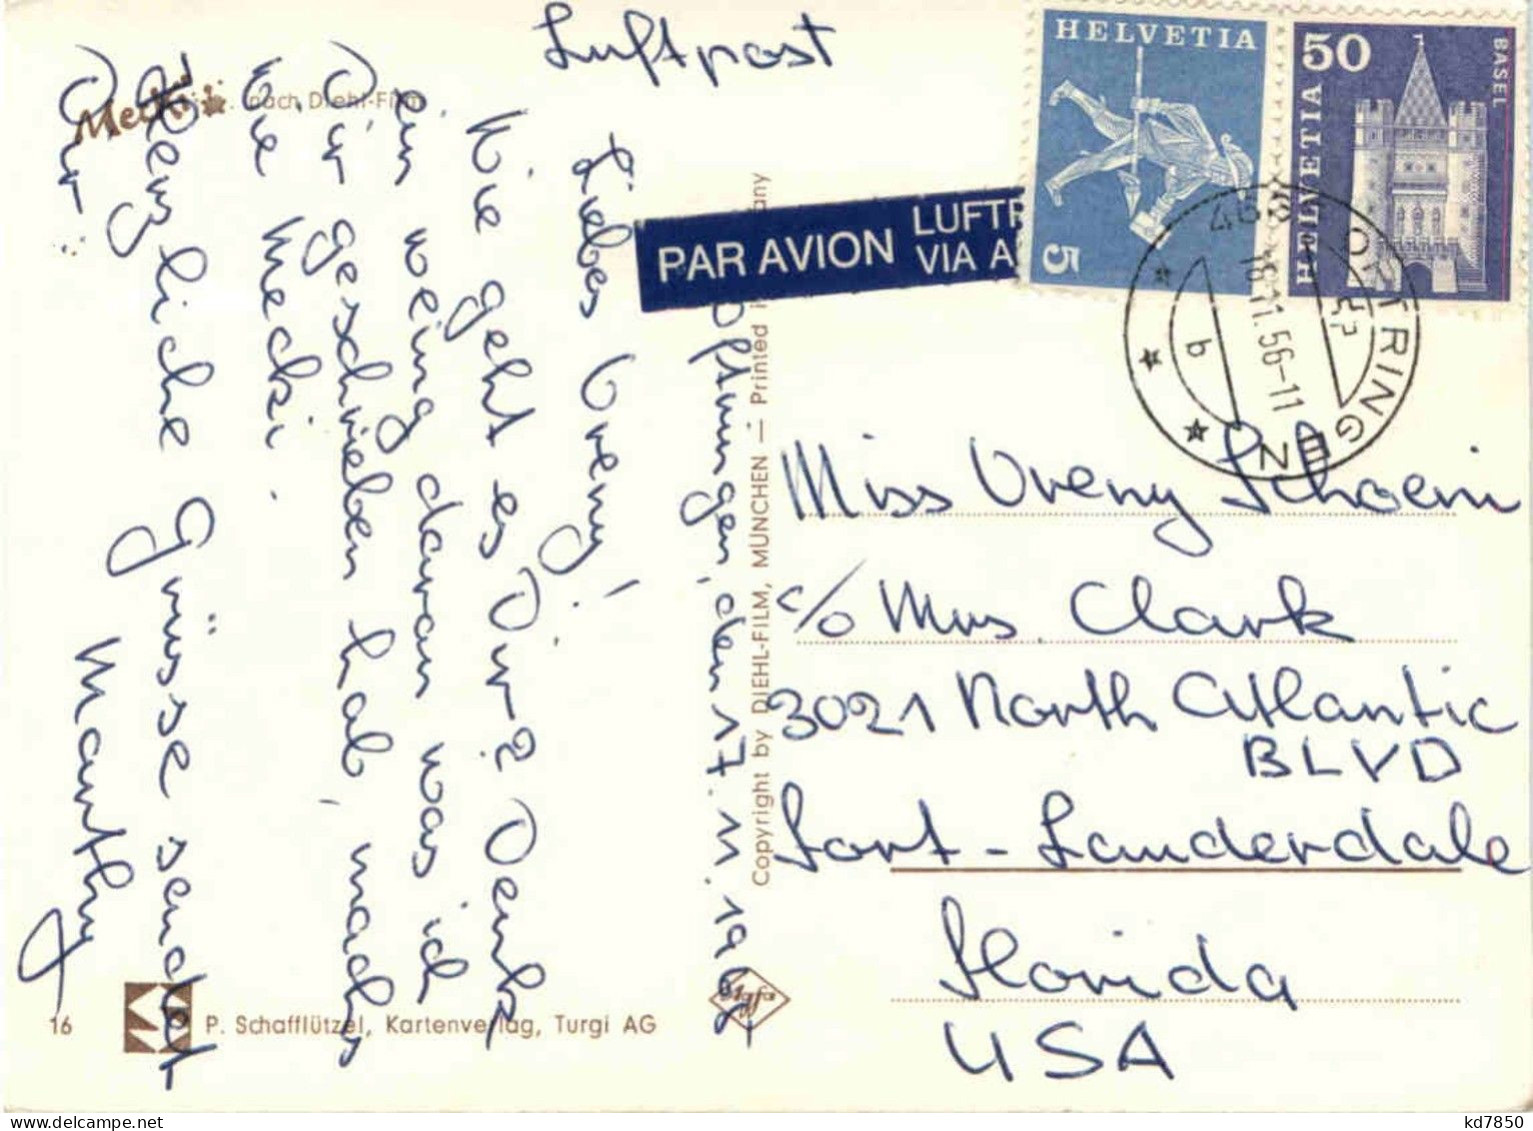 Luftpost
Mecki
nach Diehl-Film
Oftringen, den 17. 11. 196
Liebes Vreny!
Wie geht es Dir? Denk
ein wenig daran was ich
Dir geschrieben hab, mach's
wie Mecki.
Herzliche Grüsse sendet
Dir Manthy
16
P. Schafflützel, Kartenverlag, Turgi AG
Copyright by DIEHL-FILM, MÜNCHEN — Printed
any
Agfa
PAR AVION
LUFTP
VIA A
HELVETIA
5
50
HELVETIA
BASEL
OFTRINGEN
18.11.56-11
b
Miss Vreny Schoeni
c/o Mrs. Clark
3021 North Atlantic
BLVD
Fort-Lauderdale
Florida
USA
kd7850